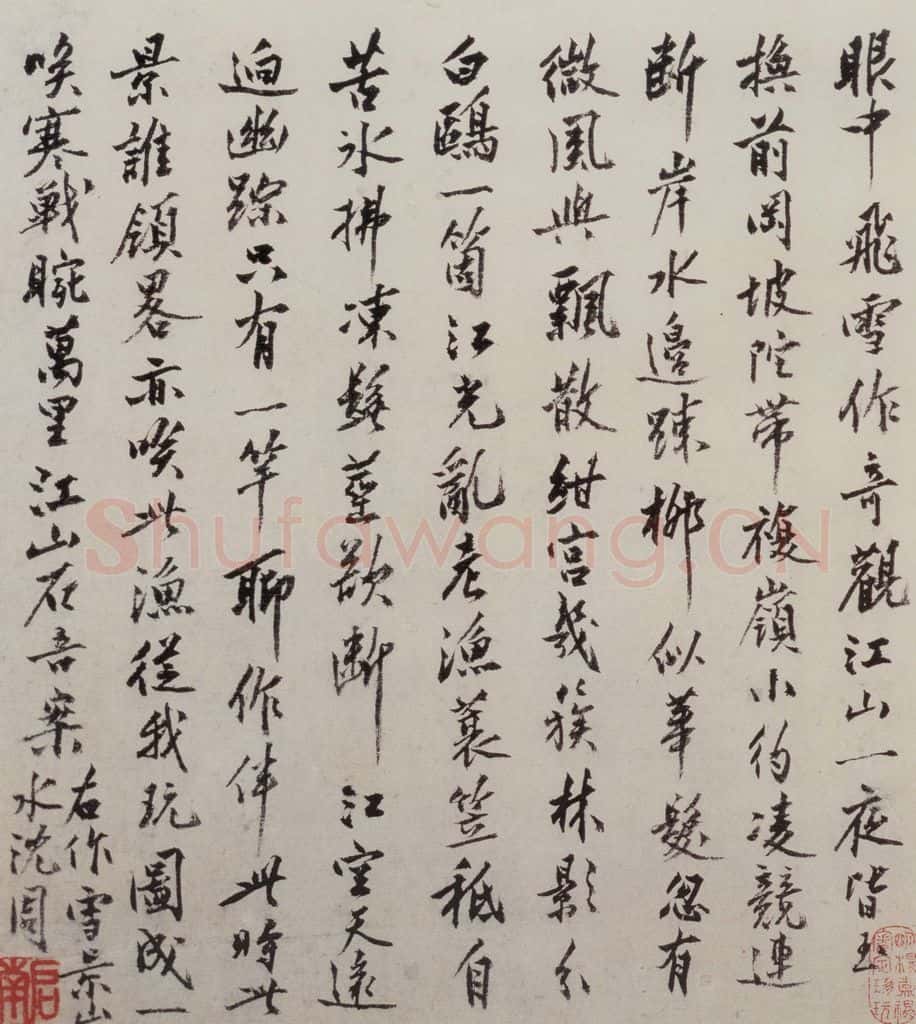 眼中飛雪作奇觀江山一夜皆玉
換前岡坡陀帶複嶺小彴凌競連
斷岸水邊踈柳似華髮忽有
微風與飄散紺宮幾簇林影分
白鷗一箇江光亂老漁蓑笠秪自
苦水拂凍髯莖欲斷江空天遠
迥幽踪只有一竿聊作伴此時此
景誰領畧亦咲此漁從我玩圖成一
咲寒戰腕萬里江山在吾案
右作雪景山
水沈周
啓南
Shufawang.CN